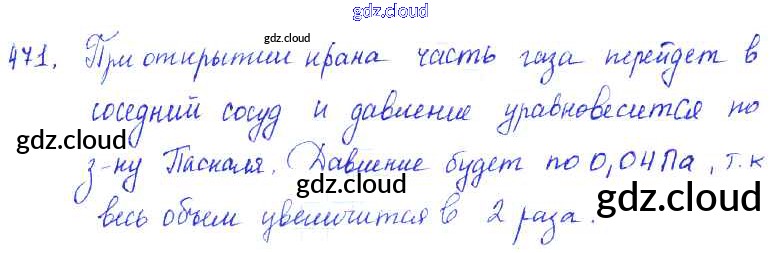 gdz.cloud
471. При открытии крана часть газа перейдет в
gdz.cloud
соседний сосуд и давление уравновесится по
gdz.cloud
з-ну Паскаля. Давление будет по 0,04Па, т.к
gdz.cloud
gdz.cloud
весь объем увеличится в 2 раза.